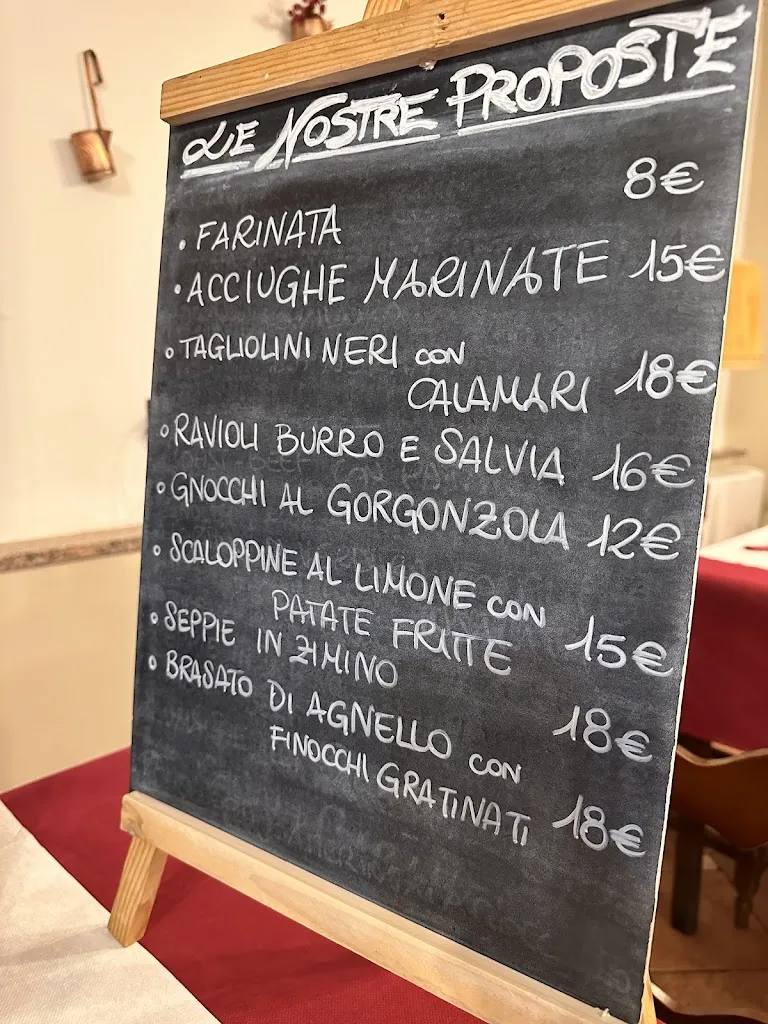 LE NOSTRE PROPOSTE
• FARINATA 8€
• ACCIUGHE MARINATE 15€
• TAGLIOLINI NERI CON
CALAMARI 18€
• RAVIOLI BURRO E SALVIA 16€
• GNOCCHI AL GORGONZOLA 12€
• SCALOPPINE AL LIMONE CON
PATATE FRITTE 15€
• SEPPIE IN ZIMINO 18€
• BRASATO DI AGNELLO CON
FINOCCHI GRATINATI 18€